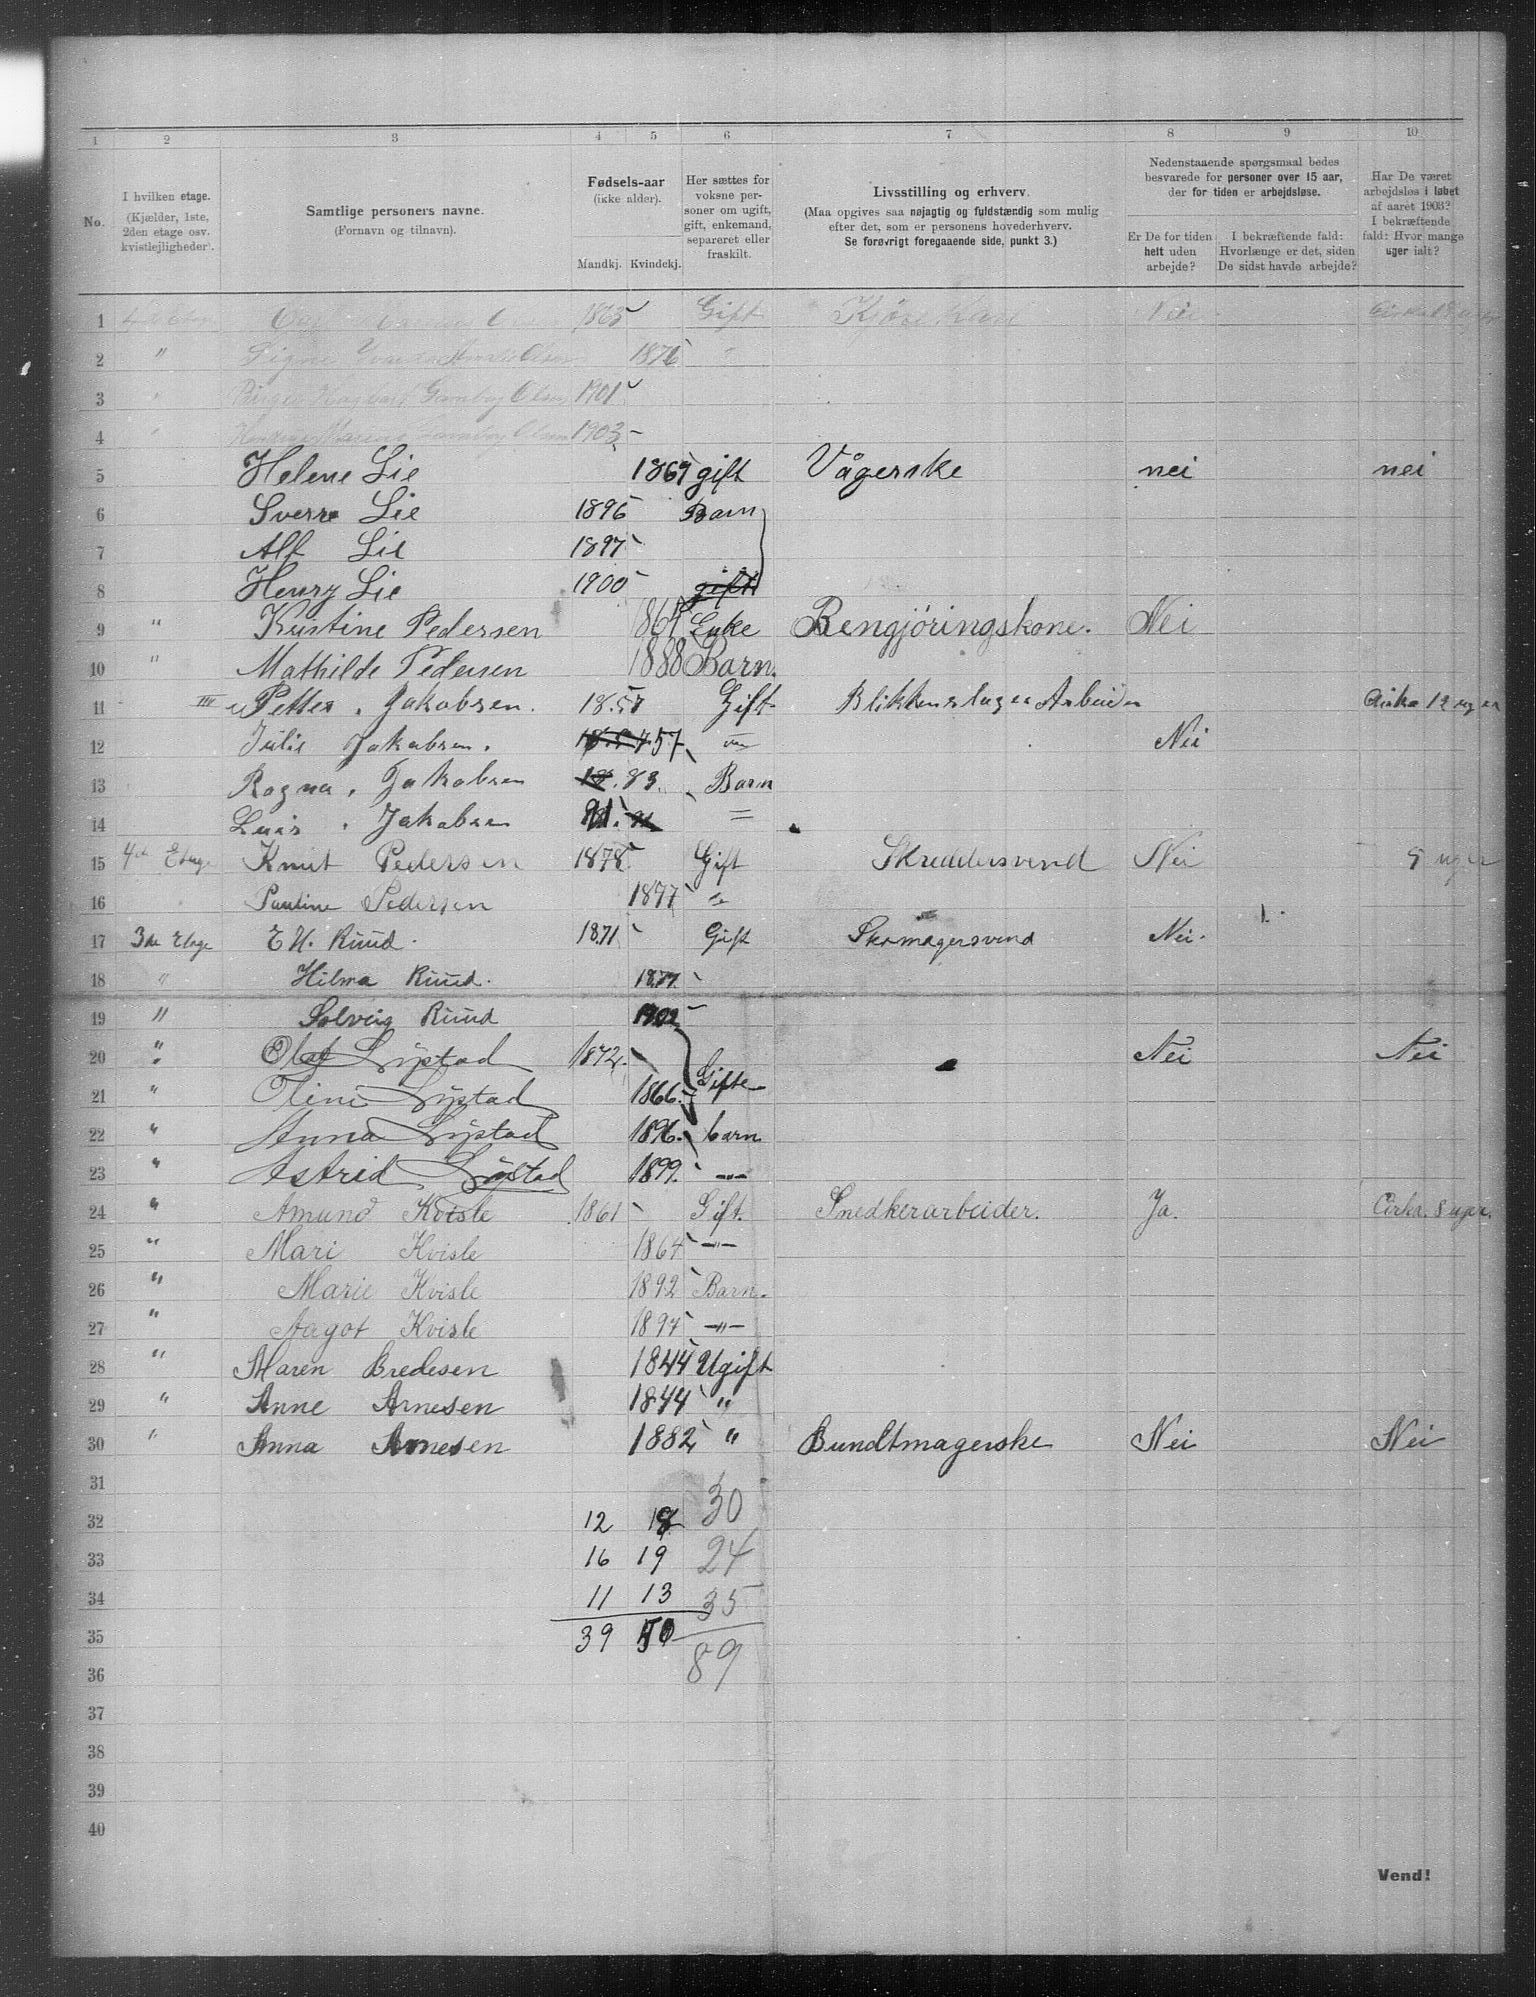 1 2 3 4 5 6 7 8 9 10
No.
I hvilken etage.
(Kjælder, 1ste,
2den etage osv.
kvistlejligheder).
Samtlige personers navne.
(Fornavn og tilnavn).
Fødsels-aar
(ikke alder).
Mandkj. Kvindekj.
Her sættes for
voksne per-
soner om ugift,
gift, enkemand,
separeret eller
fraskilt.
Livsstilling og erhverv.
(Maa opgives saa nøjagtig og fuldstændig som mulig
efter det, som er personens hovederhverv.
Se forøvrigt foregaaende side, punkt 3.)
Nedenstaaende spørgsmaal bedes
besvarede for personer over 15 aar,
der for tiden er arbejdsløse.
Er De for tiden
helt uden
arbejde?
I bekræftende fald:
Hvorlænge er det, siden
De sidst havde arbejde?
Har De været
arbejdsløs i løbet
af aaret 1903?
I bekræftende
fald: Hvor mange
uger ialt?
1 1863 Gift Nei
2 " Signe Olsen 1876 "
3 " Birger Olsen 1901
4 " Olsen 1903
5 Helene Lie 1867 gift Vågerske nei nei
6 Sverre Lie 1896 Barn
7 Alf Lie 1897
8 Henry Lie 1900 gift
9 " Kristine Pedersen Enke Bengjöringskone. Nei
10 " Mathilde Pedersen 1888 Barn.
11 III Petter. Jakobsen. 18.57 Gift Blikkenslager Arbeider Cirka 12 uger
12 Julie Jakobsen. 57 Nei
13 Ragna. Jakobsen 83. Barn
14 Jakobsen 91.
15 4de Etage Knut Pedersen 1878 Gift Skreddersvend Nei uger
16 Pauline Pedersen 1877 "
17 3de Etage E H. Ruud. 1871 Gift Skomagersvend Nei.
18 " Hilma Ruud. 1877
19 " Solveig Ruud 1902
20 " Olaf Lystad 1872. Nei Nei
21 " Oline Lystad 1866. Gifte
22 " Anna Lystad 1896. barn
23 " Astrid Lystad 1899. -"-
24 " Amund Kvisle 1861 Gift. Snedkerarbeider. Ja. Cirka. 8 uger.
25 " Mari Kvisle 1864 -"-
26 " Marie Kvisle 1892 Barn.
27 " Aagot Kvisle 1897 -"-
28 " Maren Bredesen 1844 Ugift
29 " Anne Arnesen 1844 "
30 " Anna Arnesen 1882 " Bundtmagerske Nei Nei
31 30
32 12 18
33 16 19 24
34 11 13 35
35 39 50
36 89
37
38
39
40
Vend!